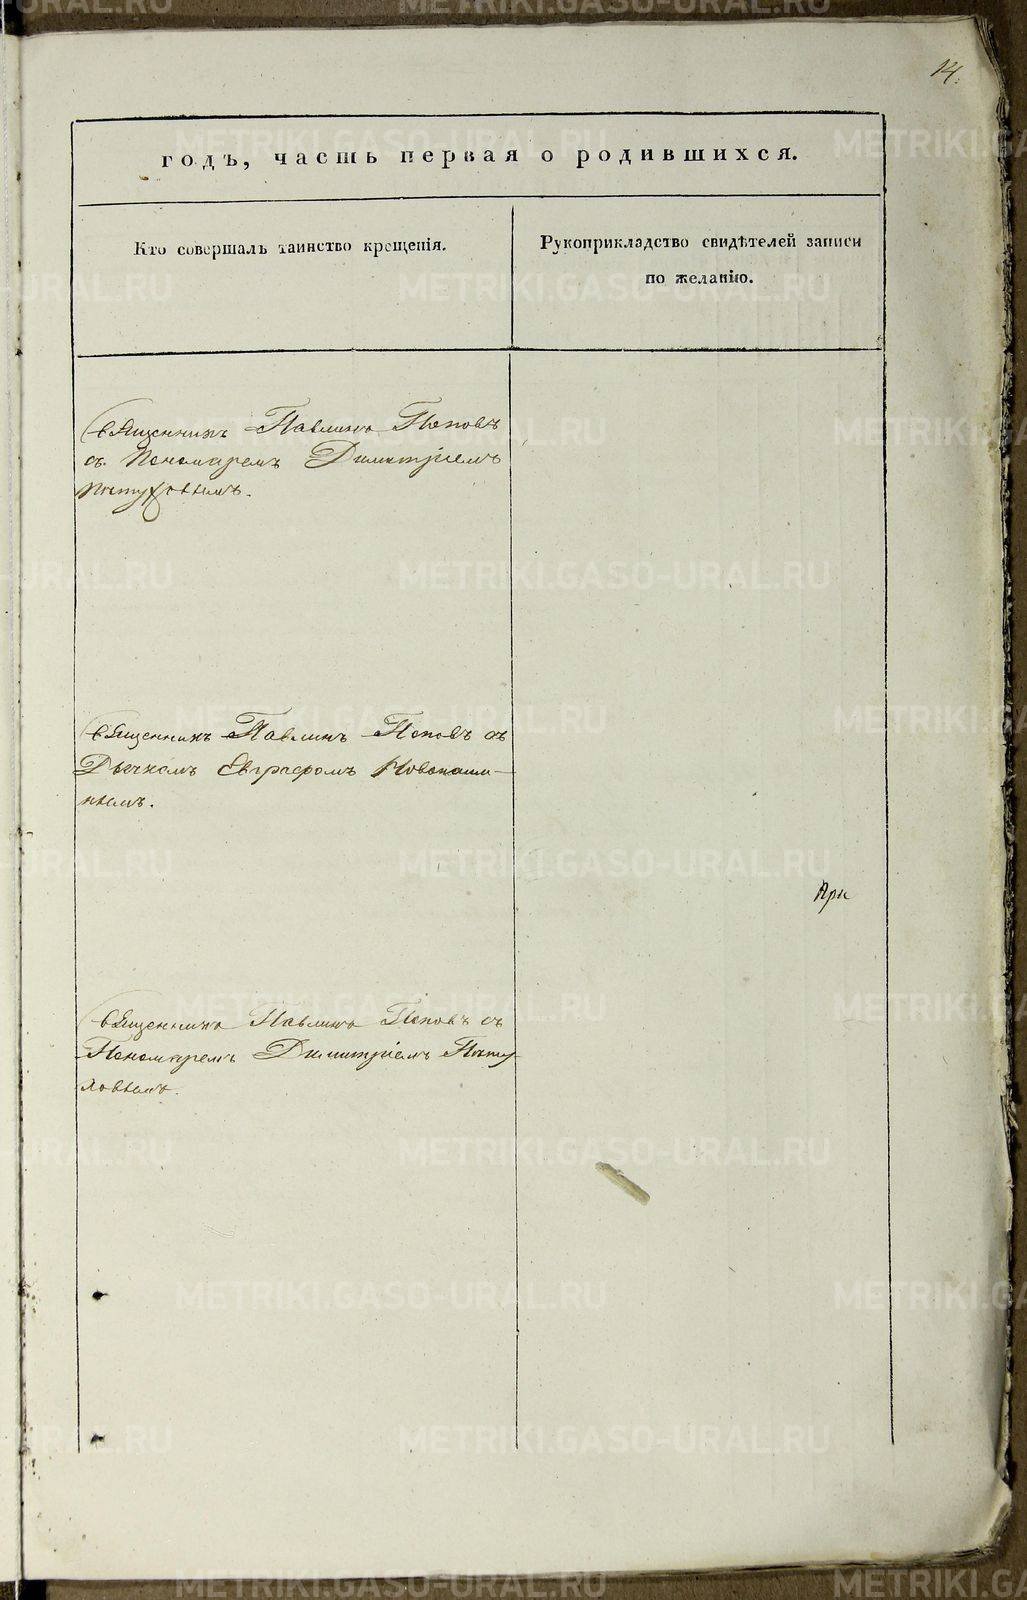 14.
годъ, часть первая о родившихся.
Кто совершалъ таинство крещенія.
Рукоприкладство свидѣтелей записи
по желанію.
Священникъ Павлинъ Поповъ
съ Пономаремъ Димитріемъ
Пѣтуховымъ.
Священникъ Павлинъ Поповъ съ
Дьячкомъ Евграфомъ Новопаши-
нымъ.
При
Священникъ Павлинъ Поповъ съ
Пономаремъ Димитріемъ Пѣту-
ховымъ.
METRIKI.GASO-URAL.RU